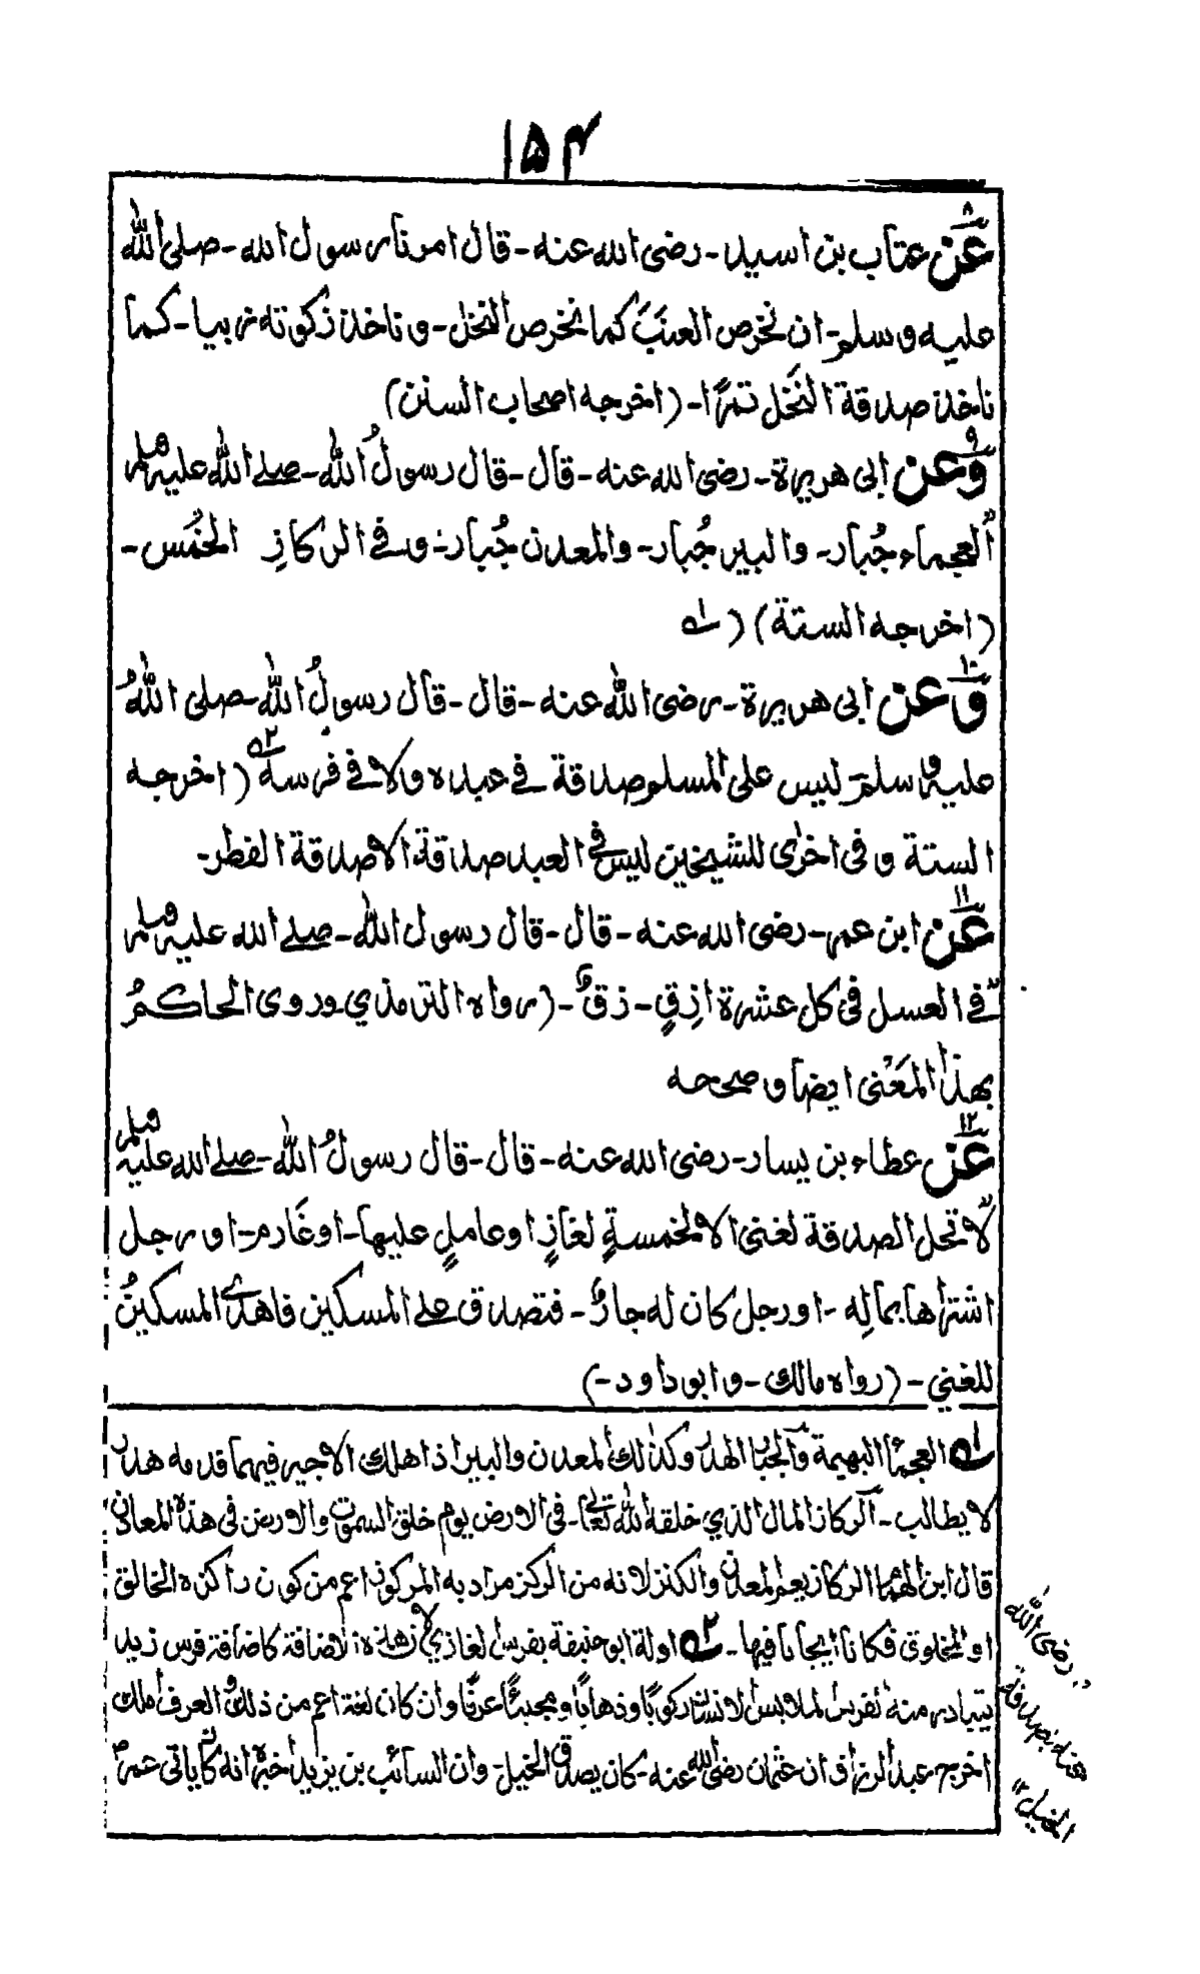 ۱۵۴
۸
عَن عتاب بن اسيد - رضى الله عنه - قال امرنا رسول الله - صلى الله
عليه وسلم - ان نخرص العنب كما نخرص النخل - وناخذ زكوته زبيبا - كما
ناخذ صدقة النخل تمرًا - (اخرجه اصحاب السنن)
۹
وَعن ابى هريرة - رضى الله عنه - قال - قال رسولُ الله - صلے الله عليه وسلم
ألعجماء جُبار - والبير جُبار - والمعدن جُبار - وفے الركازِ الخمُس -
(اخرجه الستة) (۱ه
۱۰
وَعن ابى هريرة - رضى الله عنه - قال - قال رسولُ الله - صلى اللهُ
عليه وسلم - ليس على المسلم صدقة فے عبده ولا فے فرسه ۲ه (اخرجه
الستة وفى اخرٰى للشيخين ليس فے العبد صدقة الا صدقة الفطر -
۱۱
عَن ابن عمر - رضى الله عنه - قال - قال رسول الله - صلے الله عليه وسلم
فے العسل فى كل عشرة ازِقٍ - زقٌ - (رواه الترمذي وروى الحاكمُ
بهذا المَعْنى ايضا وصححه
۱۲
عَن عطاء بن يسار - رضى الله عنه - قال - قال رسولُ الله - صلے الله عليه وسلم
لا تحل الصدقة لغنى الا لخمسةٍ لغازٍ او عاملٍ عليها - او غَارم - او رجل
اشتراها بمالِه - او رجل كان له جارٌ - فتصدق علے المسكين فاهدٰے المسكينُ
للغني - (رواه مالك - وابو داود -)
۱ه العجماء البهيمة والجبار الهدر وكذلك المعدن والبير اذا هلك الاجير فيهما فدمه هدر
لا يطالب - آلركاز المال الذي خلقه الله تعالٰى - فى الارض يوم خلق السموٰت والارض فى هذه المعادن
قال ابن الهمام الركاز يعم المعدن والكنز لانه من الركز مراد به المركوز اعم من كون راكزه الخالق
او المخلوق فكان ايجابا فيها - ۲ه اوله ابو حنيفة بفرس الغازي لان هذه الاضافة كاضافة فرس زيد
يتبادر منه الفرس الملابس للانسان ركوبًا وذهابًا ومجيئًا عرفًا وان كان لغة اعم من ذلك والعرف املك
اخرج عبد الرزاق ان عثمان رضى الله عنه - كان يصدق الخيل - وان السائب بن يزيد اخبره انه كان ياتى عمر
رضى الله
عنه بصدقة
الخيل ۱۲